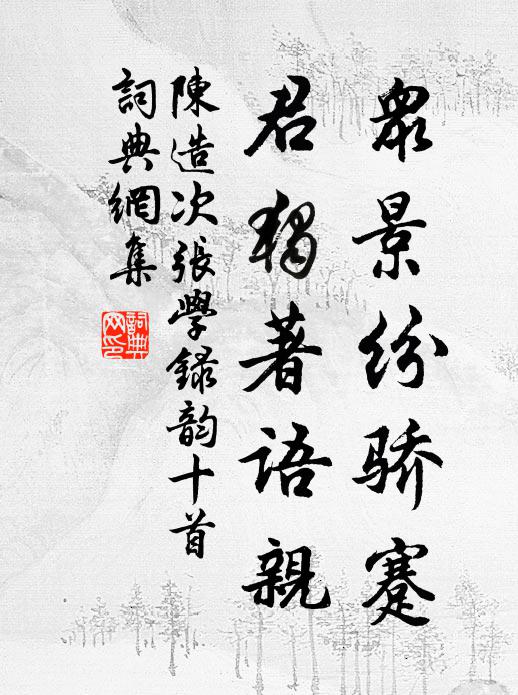 眾景紛骄蹇
君獨著語親
陳造次張學録韵十首
詞典網集
詞典網印